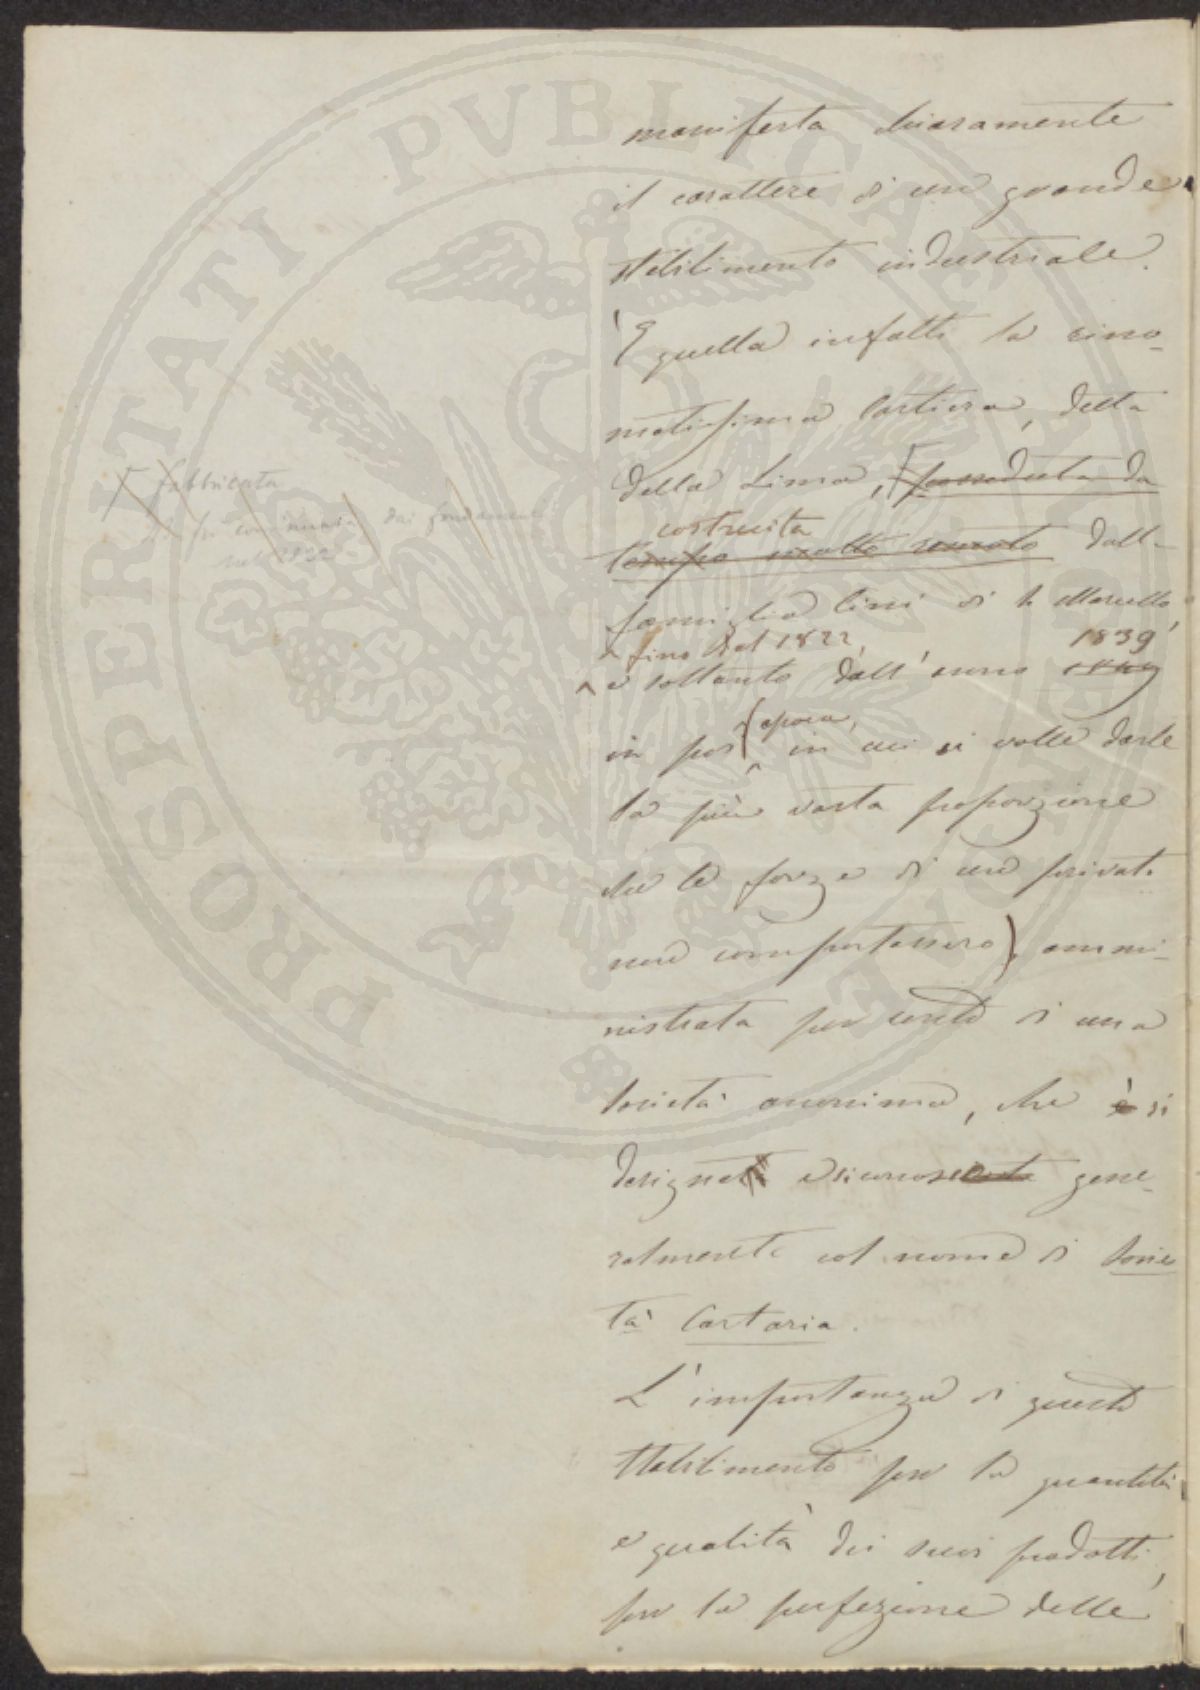 PROSPERITATI PVBLICAE
manifesta chiaramente
il carattere di un grande
stabilimento industriale.
È quella infatti la rino-
matissima Cartiera, detta
della Lima, posseduta da
costruita
tempo molto remoto dalla
famiglia Cini di S. Marcello,
fino dal 1822,
e soltanto dall'anno 1839
in poi (epoca, in cui si volle darle
la più vasta proporzione
che le forze di un privato
non comportassero), ammi-
nistrata per conto di una
Società anonima, che è si
designa e riconosciuta gene-
ralmente col nome di Socie
tà Cartaria.
L'importanza di questo
Stabilimento per la quantità
e qualità dei suoi prodotti,
per la perfezione delle
fabbricata
fu cominciata dai fondamenti
nel 1822